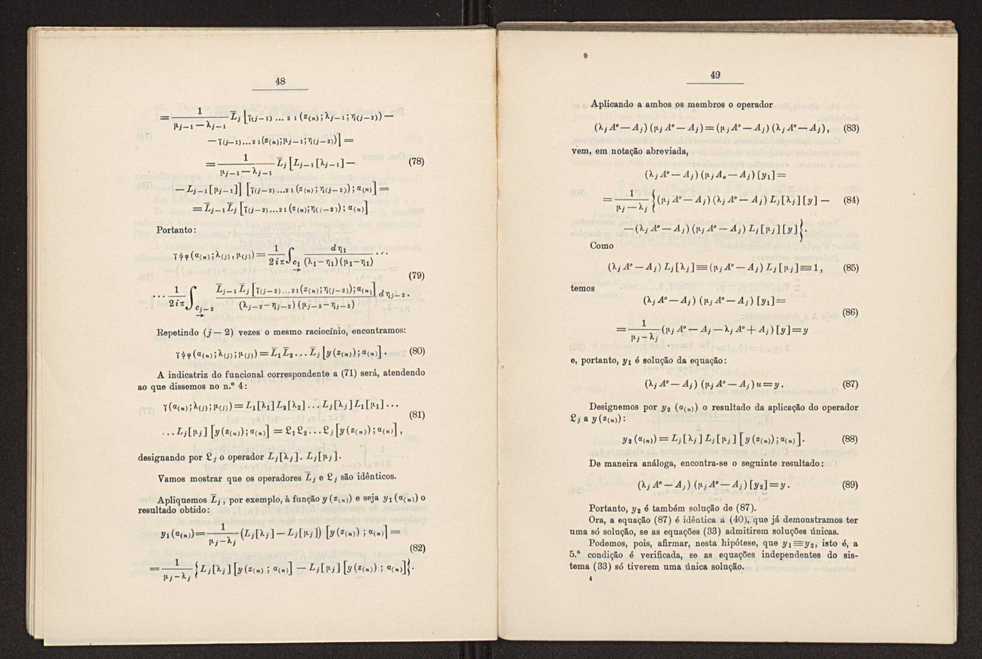 48
= 1/(μj−1 − λj−1) L̄j [γ(j−1)...21 (z(n); λj−1; η(j−2)) −
− γ(j−1)...21 (z(n); μj−1; η(j−2))] =
= 1/(μj−1 − λj−1) L̄j [Lj−1 [λj−1] − (78)
− Lj−1 [μj−1]] [γ(j−2)...21 (z(n); η(j−2)); a(n)] =
= L̄j−1 L̄j [γ(j−2)...21 (z(n); η(j−2)); a(n)]
Portanto:
γψφ (a(n); λ(j), μ(j)) = 1/2iπ ∫c1 dη1/((λ1−η1)(μ1−η1)) ...
(79)
... 1/2iπ ∫cj−2 L̄j−1 L̄j [γ(j−2)...21 (z(n); η(j−2)); a(n)]/((λj−2−ηj−2)(μj−2−ηj−2)) dηj−2.
Repetindo (j — 2) vezes o mesmo raciocínio, encontramos:
γψφ (a(n); λ(j); μ(j)) = L̄1 L̄2 ... L̄j [y (z(n)); a(n)]. (80)
A indicatriz do funcional correspondente a (71) será, atendendo
ao que dissemos no n.º 4:
γ (a(n); λ(j); μ(j)) = L1[λ1] L2[λ2] ... Lj[λj] L1[μ1] ...
(81)
... Lj[μj] [y (z(n)); a(n)] = 𝔏1 𝔏2 ... 𝔏j [y (z(n)); a(n)],
designando por 𝔏j o operador Lj[λj]. Lj[μj].
Vamos mostrar que os operadores L̄j e 𝔏j são idênticos.
Apliquemos L̄j, por exemplo, à função y (z(n)) e seja y1 (a(n)) o
resultado obtido:
y1 (a(n)) = 1/(μj−λj) (Lj[λj] — Lj[μj]) [y (z(n)) ; a(n)] =
(82)
= 1/(μj−λj) {Lj[λj] [y (z(n)) ; a(n)] — Lj[μj] [y (z(n)) ; a(n)]}.
49
Aplicando a ambos os membros o operador
(λj A° — Aj) (μj A° — Aj) = (μj A° — Aj) (λj A° — Aj), (83)
vem, em notação abreviada,
(λj A° — Aj) (μj A° — Aj) [y1] =
= 1/(μj — λj) {(μj A° — Aj) (λj A° — Aj) Lj[λj] [y] — (84)
— (λj A° — Aj) (μj A° — Aj) Lj[μj] [y]}.
Como
(λj A° — Aj) Lj[λj] ≡ (μj A° — Aj) Lj[μj] ≡ 1, (85)
temos
(λj A° — Aj) (μj A° — Aj) [y1] =
(86)
= 1/(μj−λj) (μj A° — Aj — λj A° + Aj) [y] = y
e, portanto, y1 é solução da equação:
(λj A° — Aj) (μj A° — Aj) u = y. (87)
Designemos por y2 (a(n)) o resultado da aplicação do operador
𝔏j a y (z(n)):
y2 (a(n)) = Lj[λj] Lj[μj] [y (z(n)); a(n)]. (88)
De maneira análoga, encontra-se o seguinte resultado:
(λj A° — Aj) (μj A° — Aj) [y2] = y. (89)
Portanto, y2 é também solução de (87).
Ora, a equação (87) é idêntica á (40), que já demonstramos ter
uma só solução, se as equações (33) admitirem soluções únicas.
Podemos, pois, afirmar, nesta hipótese, que y1 ≡ y2, isto é, a
5.ª condição é verificada, se as equações independentes do sis-
tema (33) só tiverem uma única solução.
4